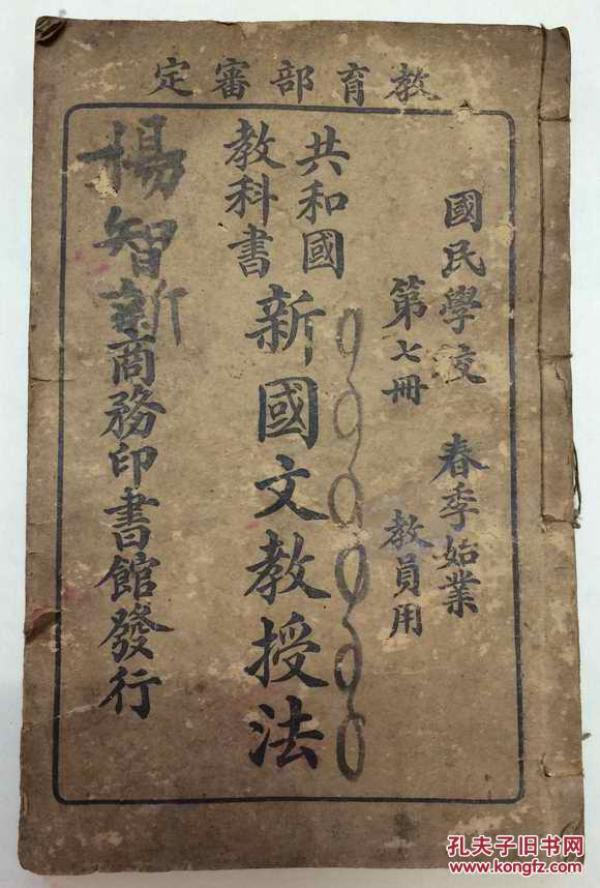 教育部審定
國民學校 春季始業
第七冊 教員用
共和國
教科書
新國文教授法
楊智新
商務印書館發行
孔夫子旧书网
www.kongfz.com